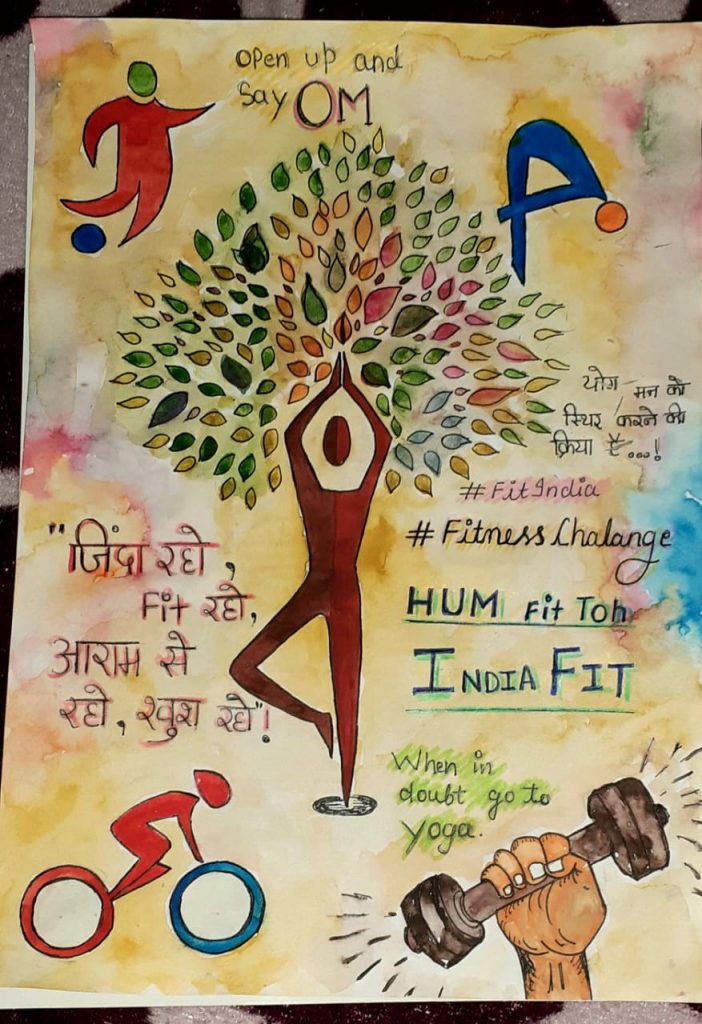 Open up and
Say OM
योग – मन को
स्थिर करने की
क्रिया है...!
#FitIndia
#FitnessChalange
HUM Fit Toh
INDIA FIT
"जिंदा रहो,
Fit रहो,
आराम से
रहो, खुश रहो"!
When in
doubt go to
yoga.